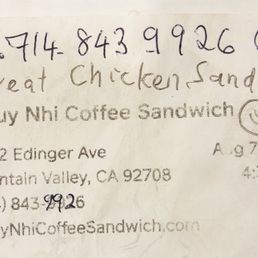 .714-843 9926
reat Chicken Sand
uy Nhi Coffee Sandwich
2 Edinger Ave
ntain Valley, CA 92708
) 843-9926
yNhiCoffeeSandwich.com